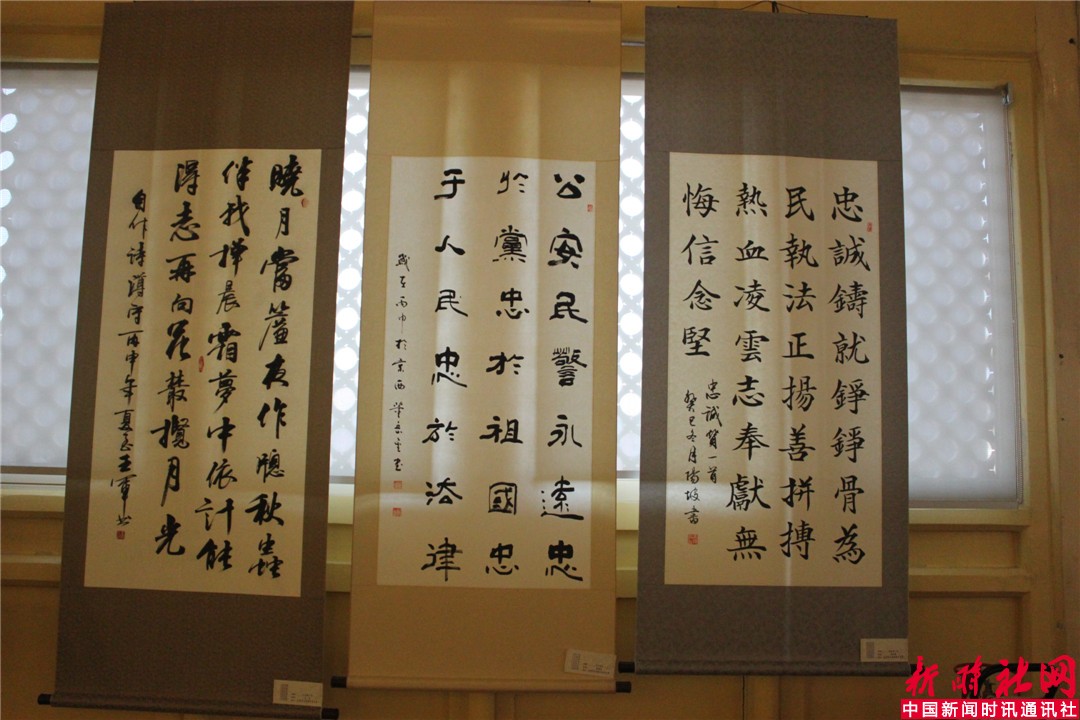 忠誠鑄就錚錚骨為
民執法正揚善拼搏
熱血凌雲志奉獻無
悔信念堅
忠誠贊一首
癸巳冬月 坡書
公安民警永遠忠
於黨忠於祖國忠
于人民忠於法律
歲在丙申於京西
曉月當簾夜作牕秋
伴我 晨霜夢中依計能
得志再向花叢攬月光
自作詩 丙申年夏
新时社网
中国新闻时讯通讯社